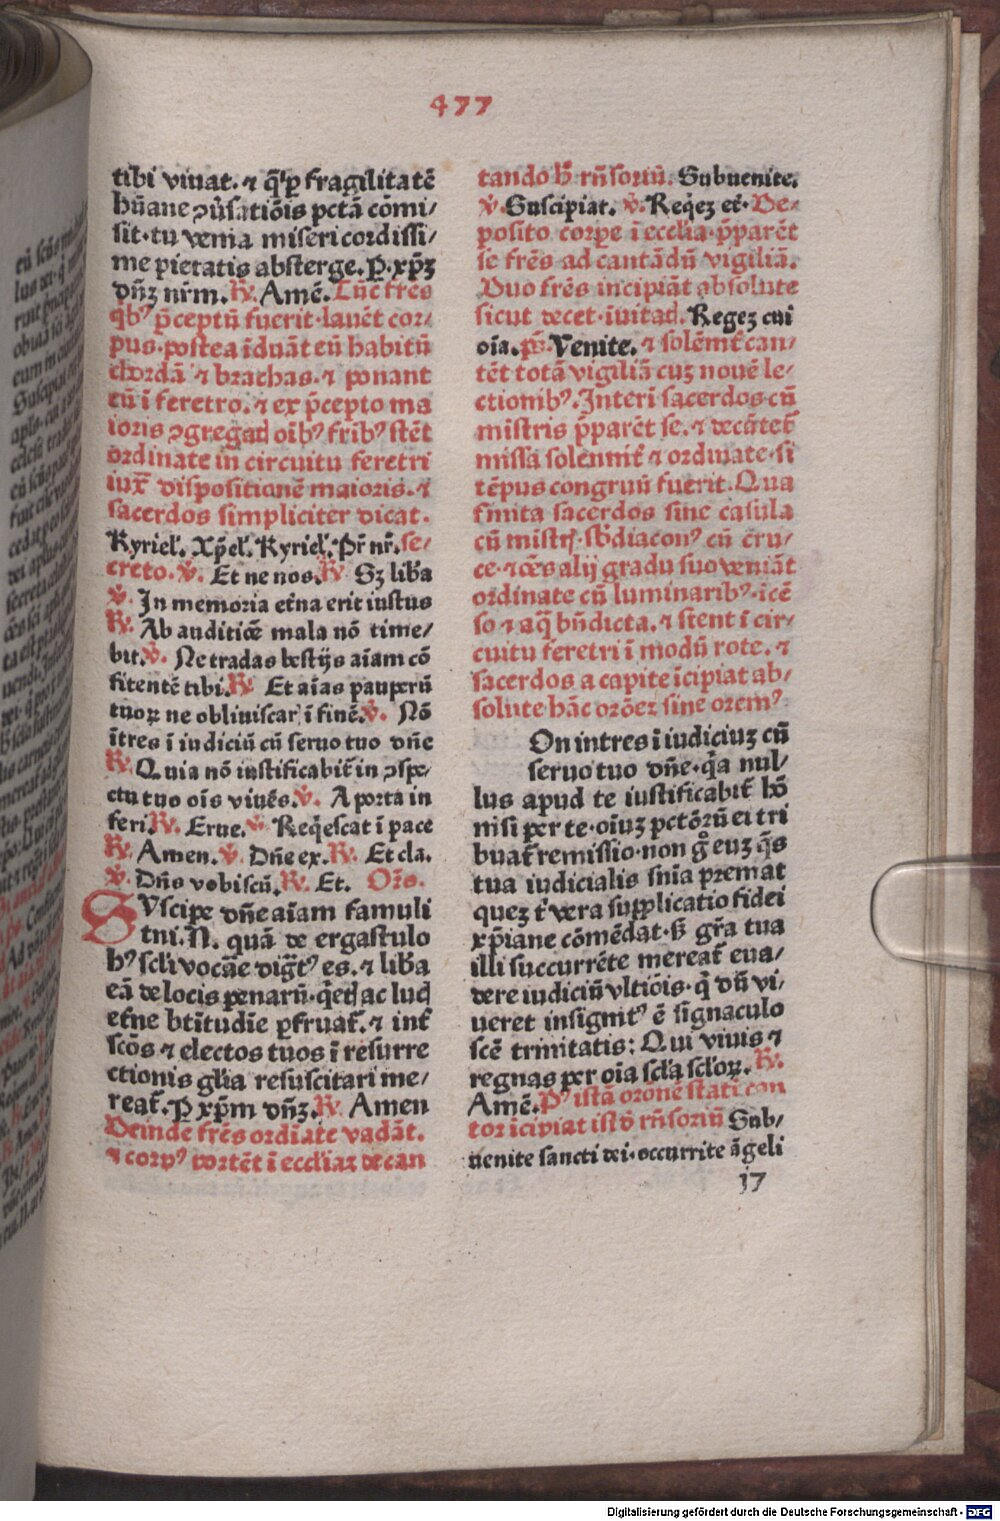 477
tibi viuat. ⁊ q̄ꝑ fragilitatē
hūane ꝯūsatiōis pctā cōmi/
sit·tu venia misericordissi/
me pietatis absterge. P. xp̄ꝫ
dn̄ꝫ nr̄m. ℟. Amē. Tūc fr̄es
q̄bꝰ p̄ceptū fuerit·lauēt cor/
pus·postea īduāt eū habitū
chordā ⁊ brachas. ⁊ ponant
eū ī feretro. ⁊ ex p̄cepto ma
ioris ꝯgregad oībꝰ fribꝰ stēt
ordinate in circuitu feretri
iux̄ dispositionē maioris. ⁊
sacerdos simpliciter dicat.
Kyriel'. Xp̄el'. Kyriel'. Pr̄ nr̄. se/
creto. ℣. Et ne nos. ℟ Sꝫ lib̄a
℣. In memoria et̄na erit iustus
℟. Ab auditiōe mala nō time/
bit. ℣. Ne tradas bestijs aīam cō
fitentē tibi. ℟ Et aīas pauperū
tuoꝝ ne obliuiscar' ī finē. ℣. Nō
ītres ī iudiciū cū seruo tuo dn̄e
℟. Quia nō iustificabit̄ in ꝯspe/
ctu tuo oīs viuēs. ℣. A porta in
feri. ℟. Erue. ℣. Req̄escat ī pace
℟. Amen. ℣. Dn̄e ex. ℟. Et cla.
℣. Dn̄s vobiscū. ℟. Et. Or̄o.
SVscipe dn̄e aīam famuli
tui. N. quā de ergastulo
hꝰ scl̄i vocāe diḡtꝰ es. ⁊ lib̄a
eā de locis penarū·q̄etꝭ ac lucꝭ
et̄ne bt̄itudīe ꝑfruat̄. ⁊ int̄
sc̄os ⁊ electos tuos ī resurre
ctionis gl̄ia resuscitari me/
reat̄. P xp̄m dn̄ꝫ. ℟. Amen
Deinde fr̄es ordīate vadāt.
⁊ corpꝰ portēt ī eccl̄iaꝫ decan
tando h̄ rn̄soriū. Subuenite.
℣. Suscipiat. ℣. Req̄eꝫ et̄. De/
posito corpe ī eccl̄ia·p̄parēt
se fr̄es ad cantādū vigiliā.
Duo fr̄es incipiāt absolute
sicut decet·īuitad. Regeꝫ cui
oīa. ps̄. Venite. ⁊ solēmt̄ can/
tēt totā vigiliā cuꝫ nouē le/
ctionibꝰ. Interī sacerdos cū
mistris p̄parēt se. ⁊ decātet̄
missā solennit̄ ⁊ ordinate·si
tēpus congruū fuerit. Qua
finita sacerdos sine casula
cū mistrꝭ·sb̄diaconꝰ cū cru/
ce·⁊ oēs alij gradu suo veniāt
ordinate cū luminaribꝰ·īcē
so ⁊ aq̄ bn̄dicta. ⁊ stent ī cir/
cuitu feretri ī modū rote. ⁊
sacerdos a capite īcipiat ab/
solute hāc orōeꝫ sine oremꝰ
On intres ī iudiciuꝫ cū
seruo tuo dn̄e·q̄a nul/
lus apud te iustificabit̄ hō
nisi per te·oīuꝫ pctōrū ei tri
buat̄ remissio·non gͦ euꝫ q̄s
tua iudicialis sn̄ia premat
queꝫ t' vera supplicatio fidei
xp̄iane cōmēdat·sꝫ gr̄a tua
illi succurrēte mereat̄ eua/
dere iudiciū vltiōis·q̄ dū vi/
ueret insignitꝰ ē signaculo
scē trinitatis: Qui viuis ⁊
regnas per oīa scl̄a scl̄oꝝ. ℟.
Amē. Pꝰ istā oronē statī can
tor īcipiat istḋ rn̄soriū Sub/
uenite sancti dei·occurrite āgeli
j7
Digitalisierung gefördert durch die Deutsche Forschungsgemeinschaft - DFG